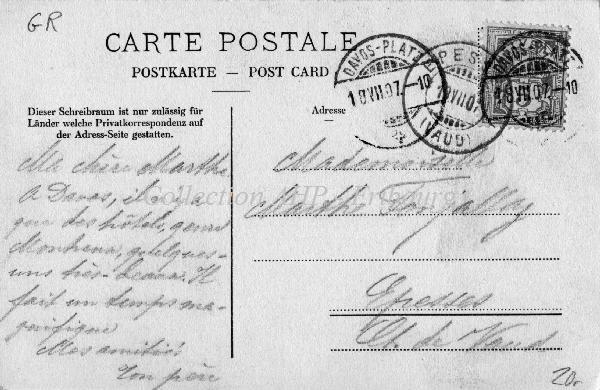 GR
CARTE POSTALE
POSTKARTE — POST CARD
DAVOS-PLATZ
18.VII.07.-10
EPESSES
18.VII.07
(VAUD)
DAVOS-PLATZ
18.VII.07.-10
Dieser Schreibraum ist nur zulässig für
Länder welche Privatkorrespondenz auf
der Adress-Seite gestatten.
Adresse
Ma chère Marthe,
A Davos, il n'y a
que des hôtels, genre
Montreux, quelques-
uns très-beaux. Il
fait un temps ma-
gnifique
Mes amitiés
Ton père
Mademoiselle
Marthe
Epesses
Ct. de Vaud
Collection
20.-